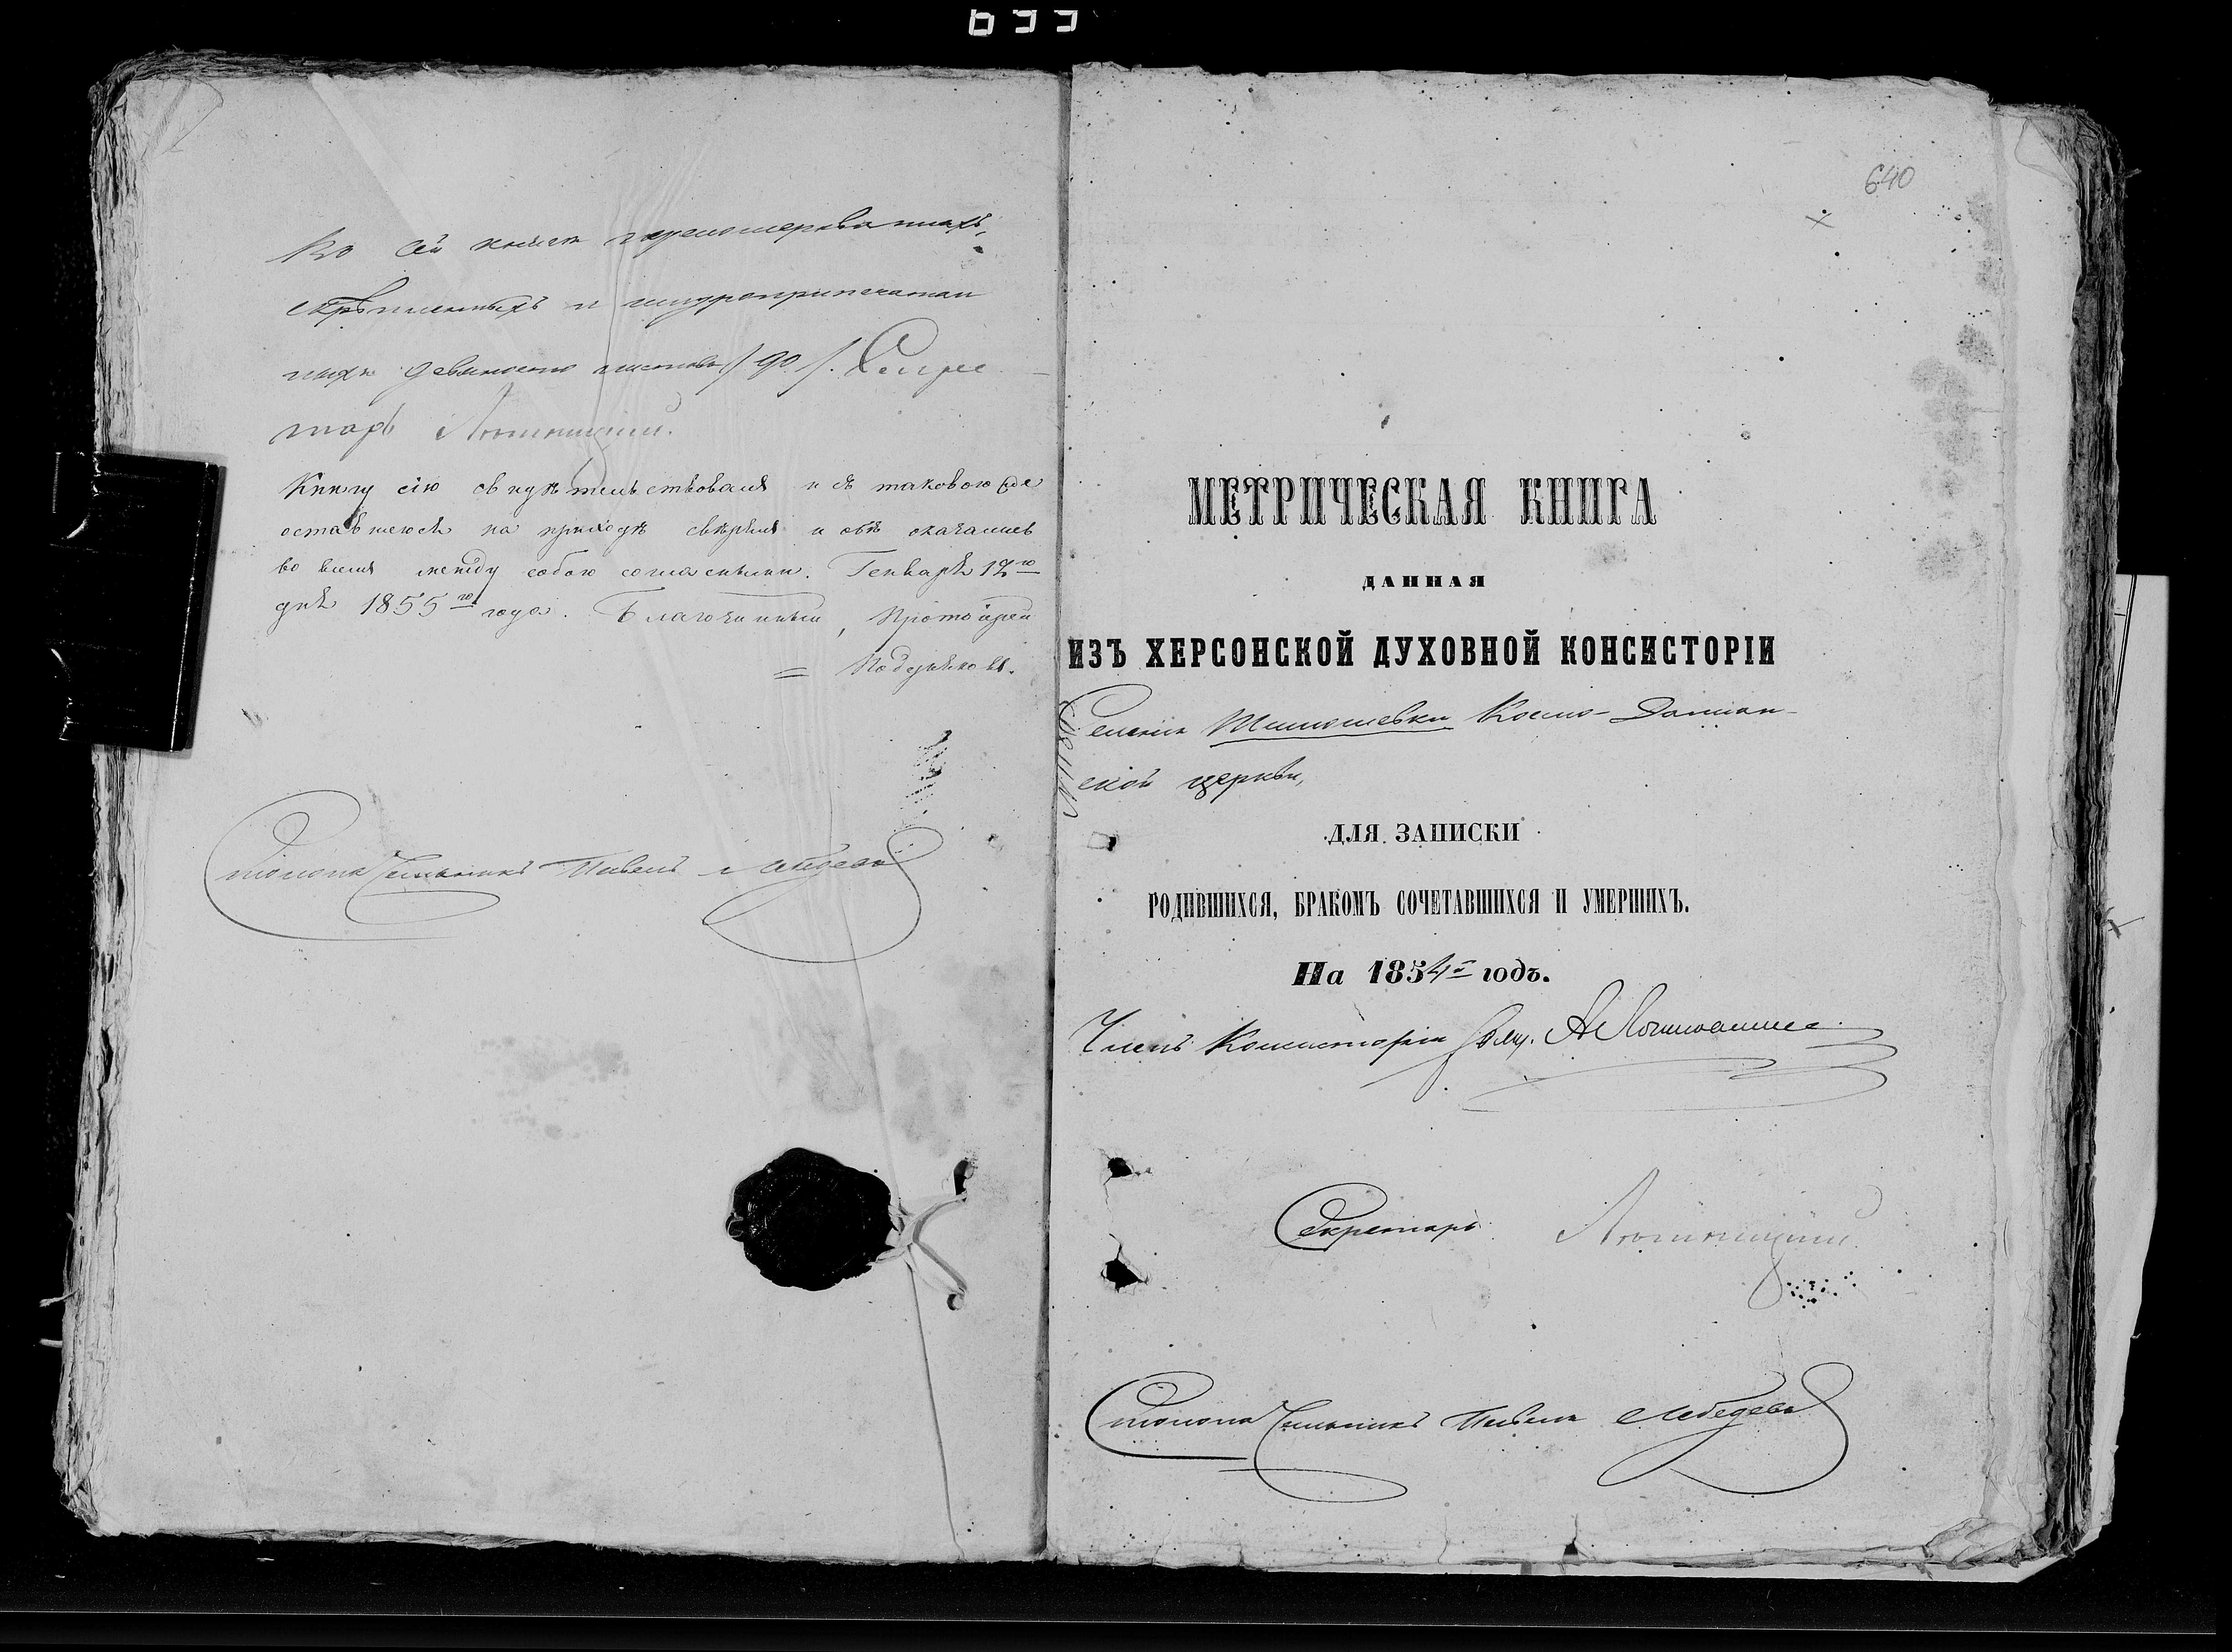 633
Въ сей книгѣ перенумерованныхъ,
скрѣпленныхъ и шнуроприпечатан
ныхъ девяносто листовъ /90/. Секре
тарь
Книгу сію свидѣтельствовалъ и съ таковою же
оставшеюся на приходѣ свѣрялъ и обѣ оказались
во всемъ между собою согласными. Генваря
дня 1855го года. Благочинный, Протоіерей
Столона чальникъ Павелъ Лебедевъ
640
МЕТРИЧЕСКАЯ КНИГА
ДАННАЯ
ИЗЪ ХЕРСОНСКОЙ ДУХОВНОЙ КОНСИСТОРІИ
Селенія Тимошевки Космо-Даміан-
ской церкви,
ДЛЯ ЗАПИСКИ
РОДИВШИХСЯ, БРАКОМЪ СОЧЕТАВШИХСЯ И УМЕРШИХЪ.
На 1854й годъ.
Членъ Консисторіи
Секретарь
Столона чальникъ Павелъ Лебедевъ